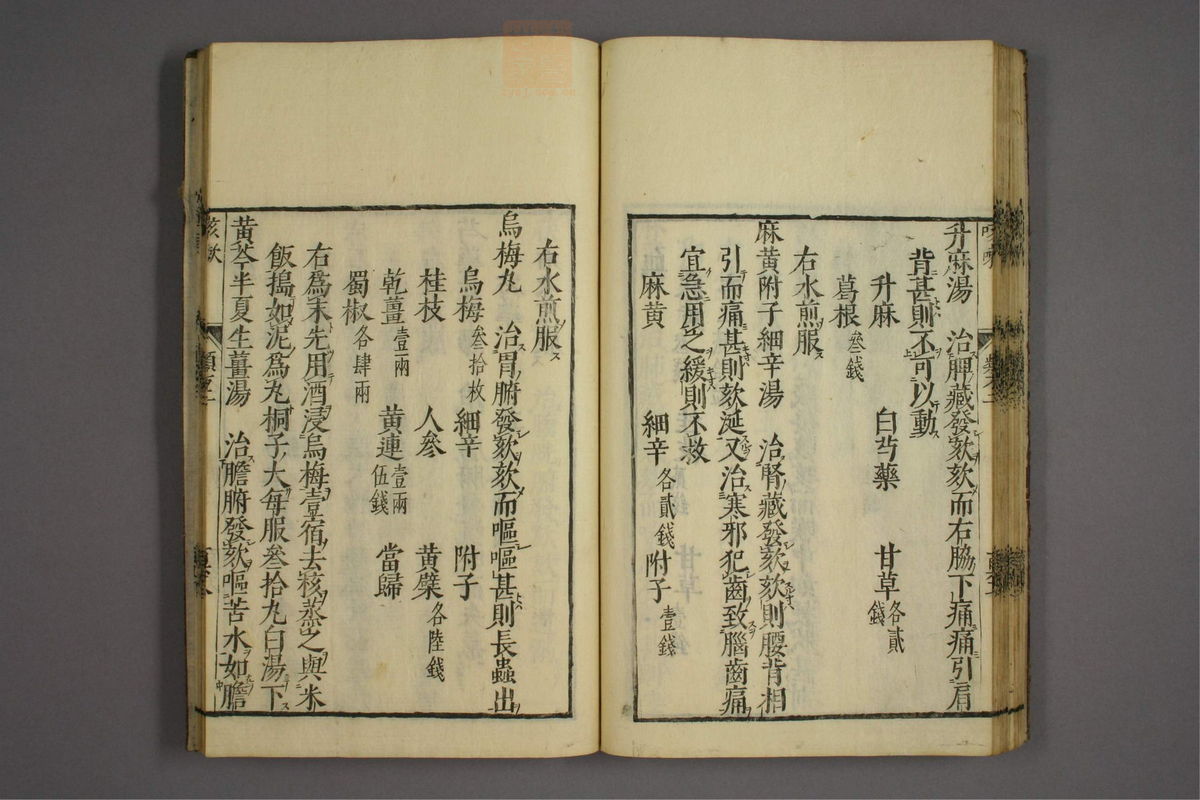 升麻湯　治脾藏發欬欬而右脇下痛痛引肩
背甚則不可以動
升麻　白芍藥　甘草各貳錢
葛根叁錢
右水煎服
麻黄附子細辛湯　治腎藏發欬欬則腰背相
引而痛甚則欬涎又治寒邪犯齒致腦齒痛
宜急用之緩則不救
麻黄　細辛各貳錢　附子壹錢
右水煎服
烏梅丸　治胃腑發欬欬而嘔嘔甚則長蟲出
烏梅叁拾枚　細辛　附子
桂枝　人參　黄檗各陸錢
乾薑壹兩　黄連壹兩伍錢　當歸
蜀椒各肆兩
右爲末先用酒浸烏梅壹宿去核蒸之與米
飯搗如泥爲丸桐子大每服叁拾丸白湯下
黄芩半夏生薑湯　治膽腑發欬嘔苦水如膽
欬